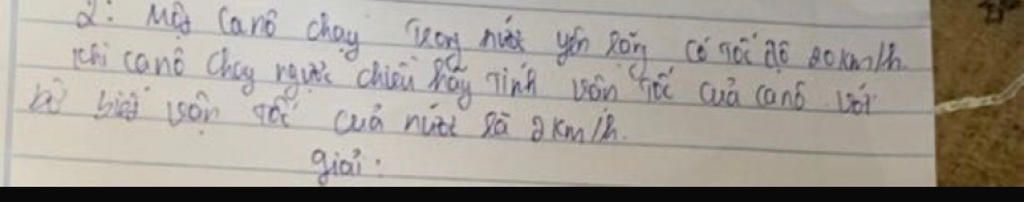 2: Một canô chạy trong nước yên lặng có tốc độ 20 km/h.
Khi canô chạy ngược chiều hãy tính vận tốc của canô với
bờ biết vận tốc của nước là 2 km/h.
giải: